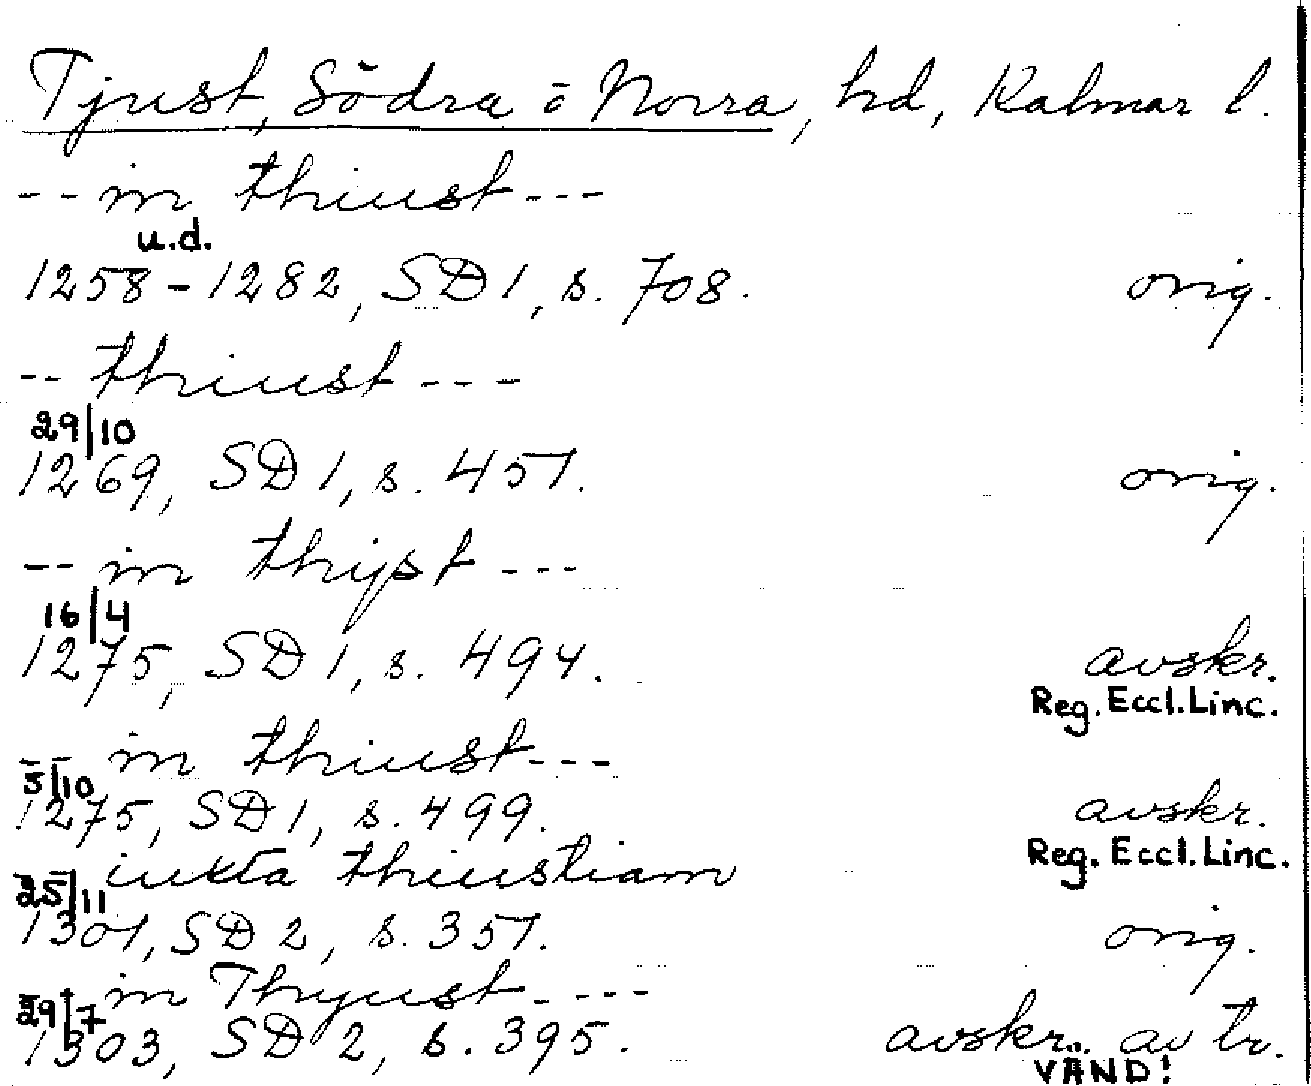 Tjust, Södra o Norra, hd, Kalmar l.
-- in thiust ---
u.d.
1258-1282, SD 1, s. 708. orig.
-- thiust ---
29/10
1269, SD 1, s. 451. orig.
-- in thijst ---
16/4
1275, SD 1, s. 494. avskr.
Reg. Eccl. Linc.
-- in thiust ---
3/10
1275, SD 1, s. 499. avskr.
Reg. Eccl. Linc.
iuxta thiustiam
25/11
1301, SD 2, s. 351. orig.
in Thyust ----
29/7
1303, SD 2, s. 395. avskr. av tr.
VÄND!